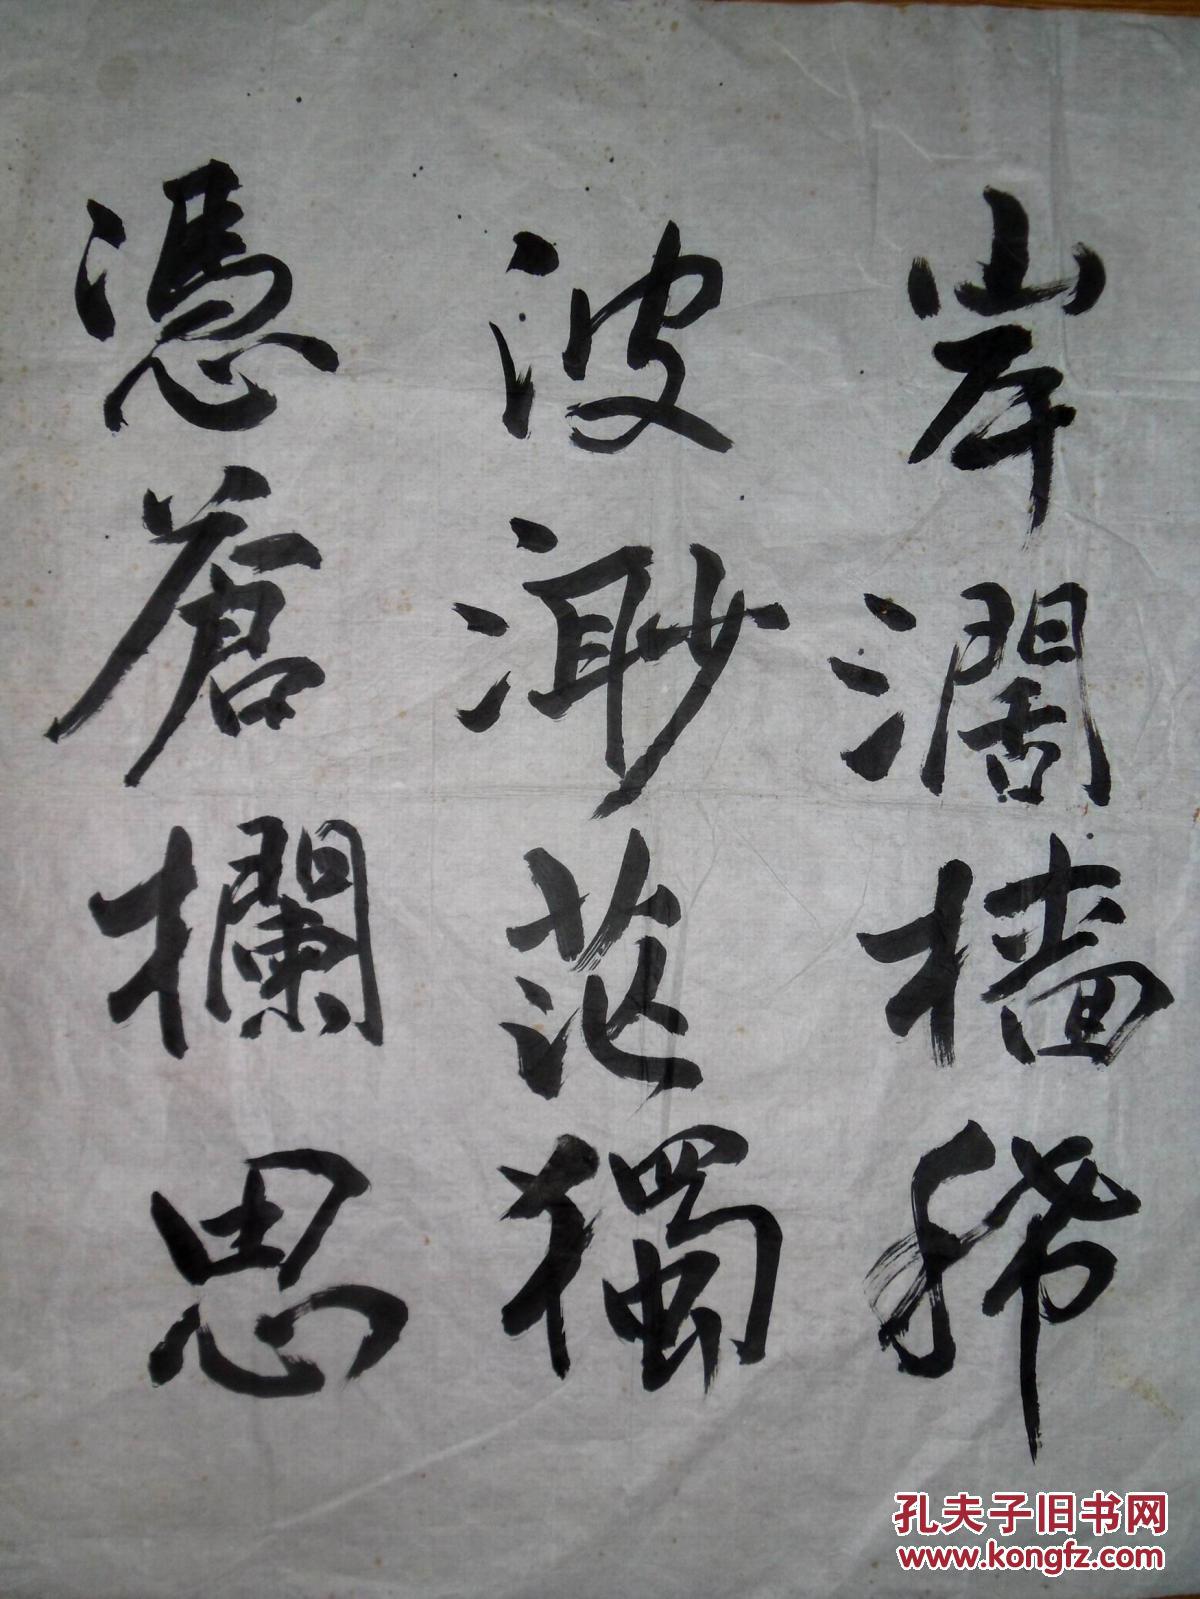 岸濶檣稀
波渺茫獨
憑蒼欄思
孔夫子旧书网
www.kongfz.com